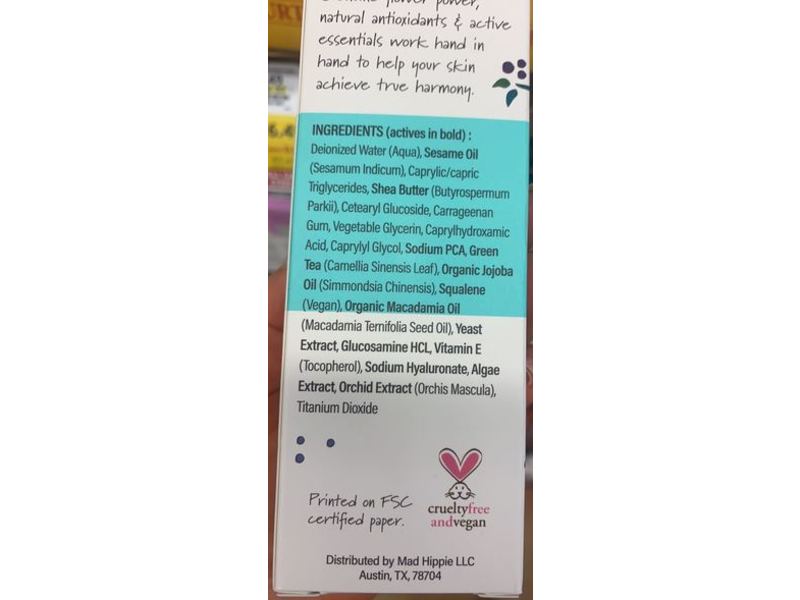 flower power,
natural antioxidants & active
essentials work hand in
hand to help your skin
achieve true harmony.
INGREDIENTS (actives in bold) :
Deionized Water (Aqua), Sesame Oil
(Sesamum Indicum), Caprylic/capric
Triglycerides, Shea Butter (Butyrospermum
Parkii), Cetearyl Glucoside, Carrageenan
Gum, Vegetable Glycerin, Caprylhydroxamic
Acid, Caprylyl Glycol, Sodium PCA, Green
Tea (Camellia Sinensis Leaf), Organic Jojoba
Oil (Simmondsia Chinensis), Squalene
(Vegan), Organic Macadamia Oil
(Macadamia Ternifolia Seed Oil), Yeast
Extract, Glucosamine HCL, Vitamin E
(Tocopherol), Sodium Hyaluronate, Algae
Extract, Orchid Extract (Orchis Mascula),
Titanium Dioxide
Printed on FSC
certified paper.
crueltyfree
andvegan
Distributed by Mad Hippie LLC
Austin, TX, 78704